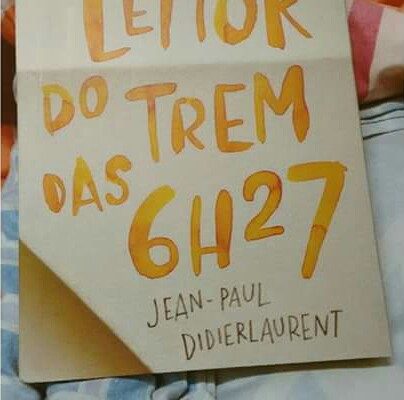 LEITOR
DO TREM
DAS 6H27
JEAN-PAUL
DIDIERLAURENT